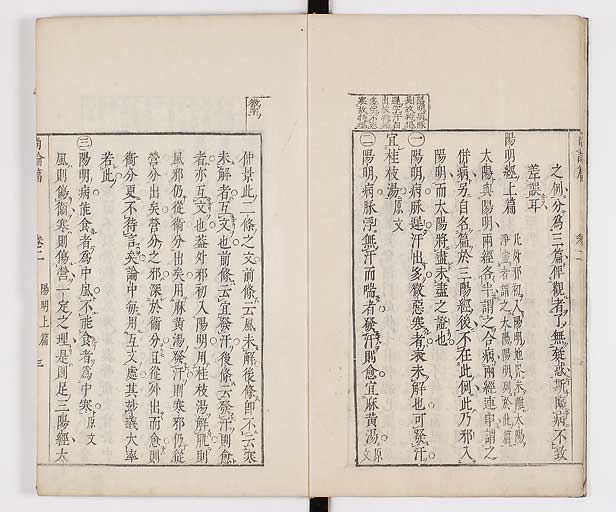 之例分為三篇俾觀者了無疑惑斯臨病不致
差誤耳
陽明經上篇 凡外邪初入陽明地界未離太陽
淨盡者謂之太陽陽明列於此篇
太陽與陽明兩經各半謂之合病兩經連串謂之
併病另自名篇於三陽經後不在此例此乃邪入
陽明而太陽將盡未盡之證也
㊀陽明病脉遲汗出多微惡寒者表未解也可發汗
宜桂枝湯原文
㊁陽明病脉浮無汗而喘者發汗則愈宜麻黃湯原文
仲景此二條之文前條云風未解後條即不云寒
未解者互文也前條云宜發汗後條云發汗則愈
者亦互文也蓋外邪初入陽明用桂枝湯解肌則
風邪仍從衛分出矣用麻黃湯發汗則寒邪仍從
營分出矣營分之邪深於衛分且從外出而愈則
衛分更不待言矣論中每用互文處其妙義大率
若此
㊂陽明病能食者為中風不能食者為中寒原文
風則傷衛寒則傷營一定之理是則足三陽經太
尚論篇 卷二 陽明上篇 三